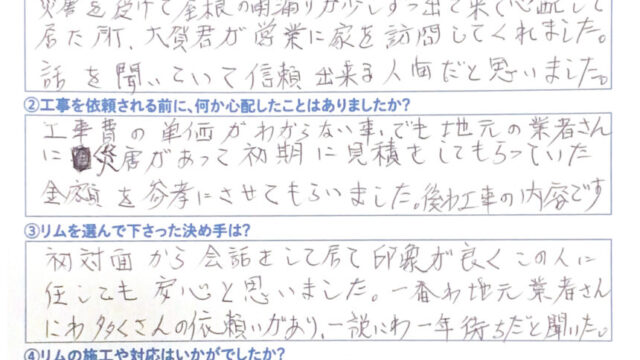 災害を受けて屋根の雨漏りが少しずつ出て来て心配して
居た所、大賀君が営業に家を訪問してくれました。
話を聞いていて信頼出来る人間だと思いました。
②工事を依頼される前に、何か心配したことはありましたか?
工事費の単価がわからない事、でも地元の業者さん
に災害があって初期に見積をしてもらっていた
金額を参考にさせてもらいました。後わ工事の内容です
③リムを選んで下さった決め手は?
初対面から会話をして居て印象が良くこの人に
任しても安心と思いました。一番わ地元業者さん
にわ多くさんの依頼いがあり、一説にわ一年待ちだと聞いた。
④リムの施工や対応はいかがでしたか?